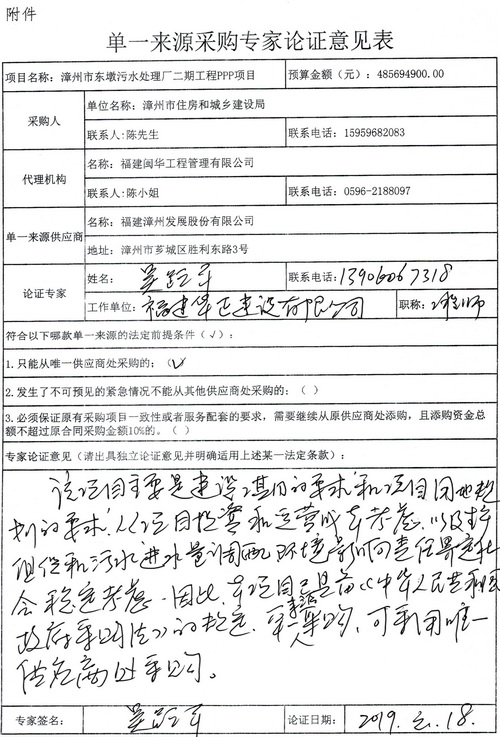 附件
单一来源采购专家论证意见表
项目名称：漳州市东墩污水处理厂二期工程PPP项目 预算金额（元）：485694900.00
采购人
单位名称：漳州市住房和城乡建设局
联系人：陈先生 联系电话：15959682083
代理机构
名称：福建闽华工程管理有限公司
联系人：陈小姐 联系电话：0596-2188097
单一来源供应商
名称：福建漳州发展股份有限公司
地址：漳州市芗城区胜利东路3号
论证专家
姓名： 联系电话：13906067318
工作单位：福建华正建设有限公司 职称：工程师
符合以下哪款单一来源的法定前提条件（√）：
1.只能从唯一供应商处采购的；（√）
2.发生了不可预见的紧急情况不能从其他供应商处采购的；（ ）
3.必须保证原有采购项目一致性或者服务配套的要求，需要继续从原供应商处添购，且添购资金总
额不超过原合同采购金额10%的。（ ）
专家论证意见（请出具独立论证意见并明确适用上述某一法定条款）：
该项目主要是建设期的要求和项目用地规
划的要求，从项目投资和运营成本考虑，以及生产
和污水进水量调配，环境影响责任界定社
会稳定考虑。因此，本项目《中华人民共和国
政府采购法》的规定，可采用唯一
供应商处采购。
专家签名： 论证日期：2019.